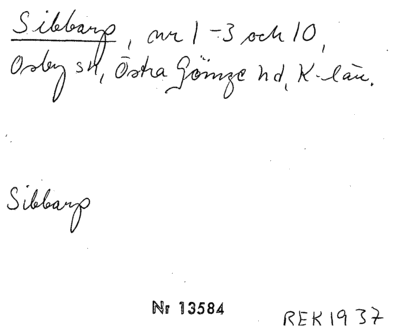 Sibbarp, nr 1-3 och 10,
Osby sn, Östra Göinge hd, K-län.
Sibbarp
Nr 13584
REK1937